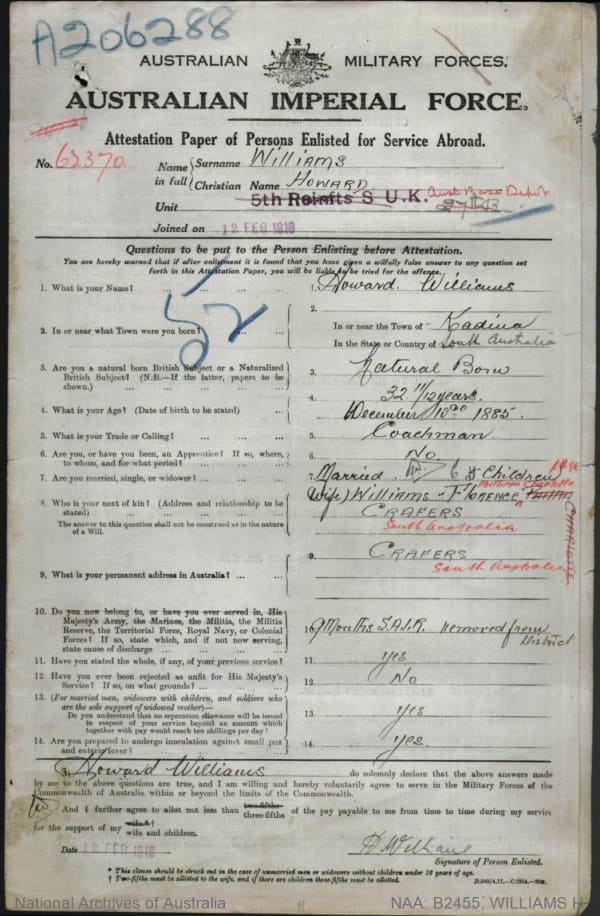 A206288
AUSTRALIAN MILITARY FORCES.
AUSTRALIAN IMPERIAL FORCE.
Attestation Paper of Persons Enlisted for Service Abroad.
No. 62370
Name in full { Surname Williams
Christian Name HOWARD
Unit 5th Reinfts S U.K. Aust Base Depot
Joined on 12 FEB 1918
Questions to be put to the Person Enlisting before Attestation.
You are hereby warned that if after enlistment it is found that you have given a wilfully false answer to any question set
forth in this Attestation Paper, you will be liable to be tried for the offence.
52
1. What is your Name? ... ... ... ... 1. Howard Williams
2. In or near what Town were you born? ... ... 2. In or near the Town of Kadina
In the State or Country of South Australia
3. Are you a natural born British Subject or a Naturalized
British Subject? (N.B.—If the latter, papers to be
shown.) ... ... ... ... 3. Natural Born
4. What is your Age? (Date of birth to be stated) ... 4. 32 11/12 years.
December 1885.
5. What is your Trade or Calling? ... ... ... 5. Coachman
6. Are you, or have you been, an Apprentice? If so, where,
to whom, and for what period? ... ... ... 6. No.
7. Are you married, single, or widower? ... ... 7. Married. 6 Children
8. Who is your next of kin? (Address and relationship to be
stated) ... ... ... ... ... 8. (Wife) Williams - Florence Charlotte
CHARLOTTE
CRAFERS
South Australia
The answer to this question shall not be construed as in the nature
of a Will.
9. What is your permanent address in Australia? ... ... 9. CRAFERS
South Australia
10. Do you now belong to, or have you ever served in, His
Majesty's Army, the Marines, the Militia, the Militia
Reserve, the Territorial Force, Royal Navy, or Colonial
Forces? If so, state which, and if not now serving,
state cause of discharge ... ... ... 10. 9 Months removed from
District
11. Have you stated the whole, if any, of your previous service? 11. yes
12. Have you ever been rejected as unfit for His Majesty's
Service? If so, on what grounds? ... ... 12. No
13. (For married men, widowers with children, and soldiers who
are the sole support of widowed mother)—
Do you understand that no separation allowance will be issued
in respect of your service beyond an amount which
together with pay would reach ten shillings per day? 13. yes
14. Are you prepared to undergo inoculation against small pox
and enteric fever? ... ... ... 14. yes.
I, Howard Williams do solemnly declare that the above answers made
by me to the above questions are true, and I am willing and hereby voluntarily agree to serve in the Military Forces of the
Commonwealth of Australia within or beyond the limits of the Commonwealth.
And I further agree to allot not less than two-fifths three-fifths of the pay payable to me from time to time during my service
for the support of my wife*† wife and children.
Date 12 FEB 1918 H Williams
Signature of Person Enlisted.
* This clause should be struck out in the case of unmarried men or widowers without children under 16 years of age.
† Two-fifths must be allotted to the wife, and if there are children three-fifths must be allotted.
National Archives of Australia NAA: B2455, WILLIAMS H